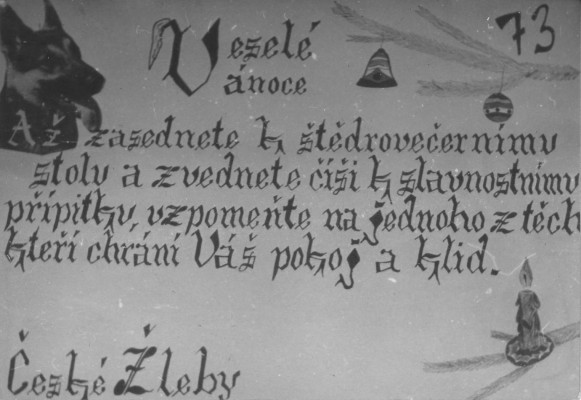 73
Veselé
Vánoce
Až zasednete k štědrovečernímu
stolu a zvednete číši k slavnostnímu
přípitku, vzpomeňte na jednoho z těch
kteří chrání Váš pokoj a klid.
České Žleby